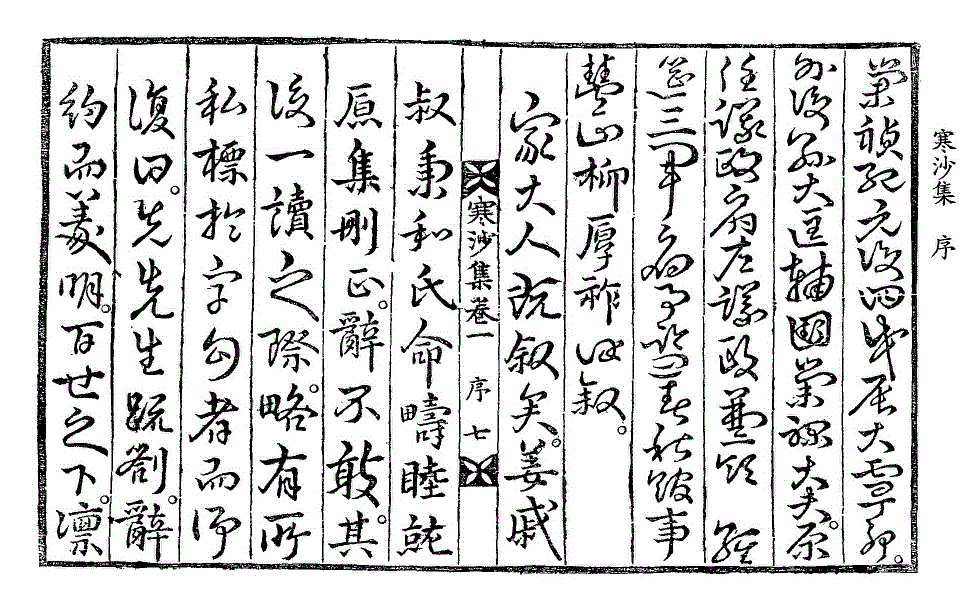 寒沙集 序
崇禎紀元後四戊辰大雪節。
外後孫大匡輔國崇祿大夫。原
任議政府左議政兼領 經
筵三軍府事監春秋館事
豐山柳厚祚謹叙。
家大人既叙矣。姜戚
寒沙集卷一 序 七
叔秉和氏命疇睦就
原集刪正。辭不敢。其
後一讀之際。略有所
私標於字句者而歸
復曰。先先生疏劄。辭
約而義明。百世之下。凜